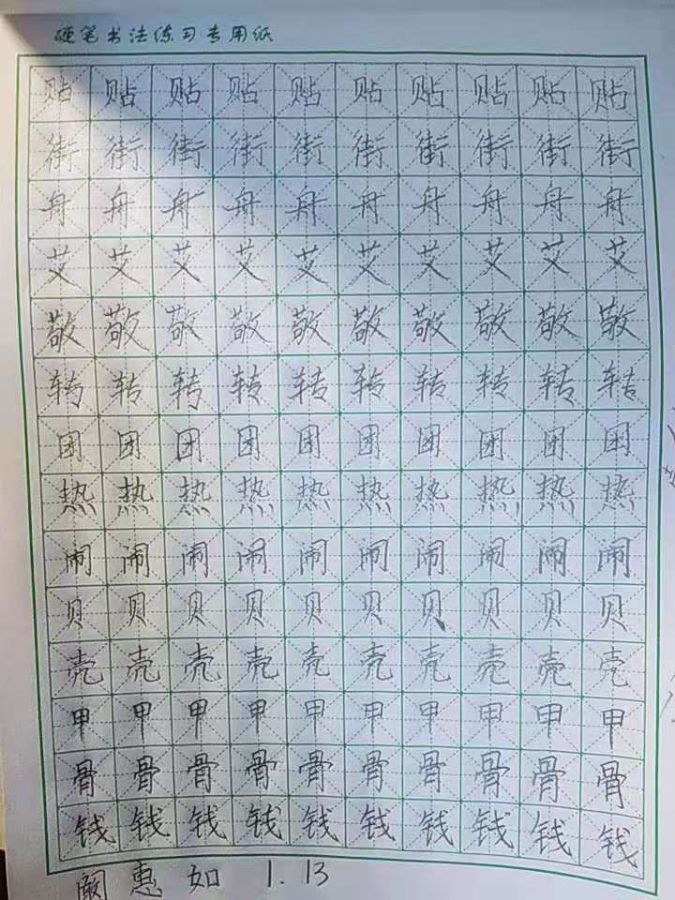 硬笔书法练习专用纸
贴 贴 贴 贴 贴 贴 贴 贴 贴 贴
街 街 街 街 街 街 街 街 街 街
舟 舟 舟 舟 舟 舟 舟 舟 舟 舟
艾 艾 艾 艾 艾 艾 艾 艾 艾 艾
敬 敬 敬 敬 敬 敬 敬 敬 敬 敬
转 转 转 转 转 转 转 转 转 转
团 团 团 团 团 团 团 团 团 团
热 热 热 热 热 热 热 热 热 热
闹 闹 闹 闹 闹 闹 闹 闹 闹 闹
贝 贝 贝 贝 贝 贝 贝 贝 贝 贝
壳 壳 壳 壳 壳 壳 壳 壳 壳 壳
甲 甲 甲 甲 甲 甲 甲 甲 甲 甲
骨 骨 骨 骨 骨 骨 骨 骨 骨 骨
钱 钱 钱 钱 钱 钱 钱 钱 钱 钱
惠 如 1.13